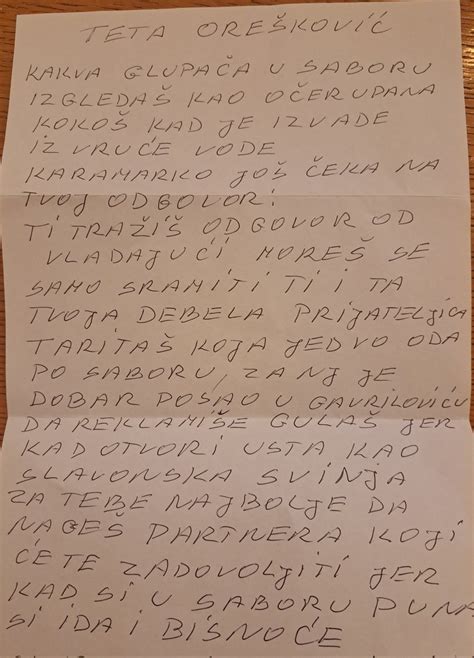 TETA OREŠKOVIĆ
KAKVA GLUPAČA U SABORU
IZGLEDAŠ KAO OČERUPANA
KOKOŠ KAD JE IZVADE
IZ VRUĆE VODE
KARAMARKO JOŠ ČEKA NA
TVOJ ODGOVOR!
TI TRAŽIŠ ODGOVOR OD
VLADAJUĆI MOREŠ SE
SAMO SRAMITI TI I TA
TVOJA DEBELA PRIJATELJICA
TARITAŠ KOJA JEDVO ODA
PO SABORU, ZA NJ JE
DOBAR POSAO U GAVRILOVIĆU
DA REKLAMIŠE GULAŠ JER
KAD OTVORI USTA KAO
SLAVONSKA SVINJA
ZA TEBE NAJBOLJE DA
NAĐEŠ PARTNERA KOJI
ĆE TE ZADOVOLJITI JER
KAD SI U SABORU PUNA
SI IDA I BISNOĆE